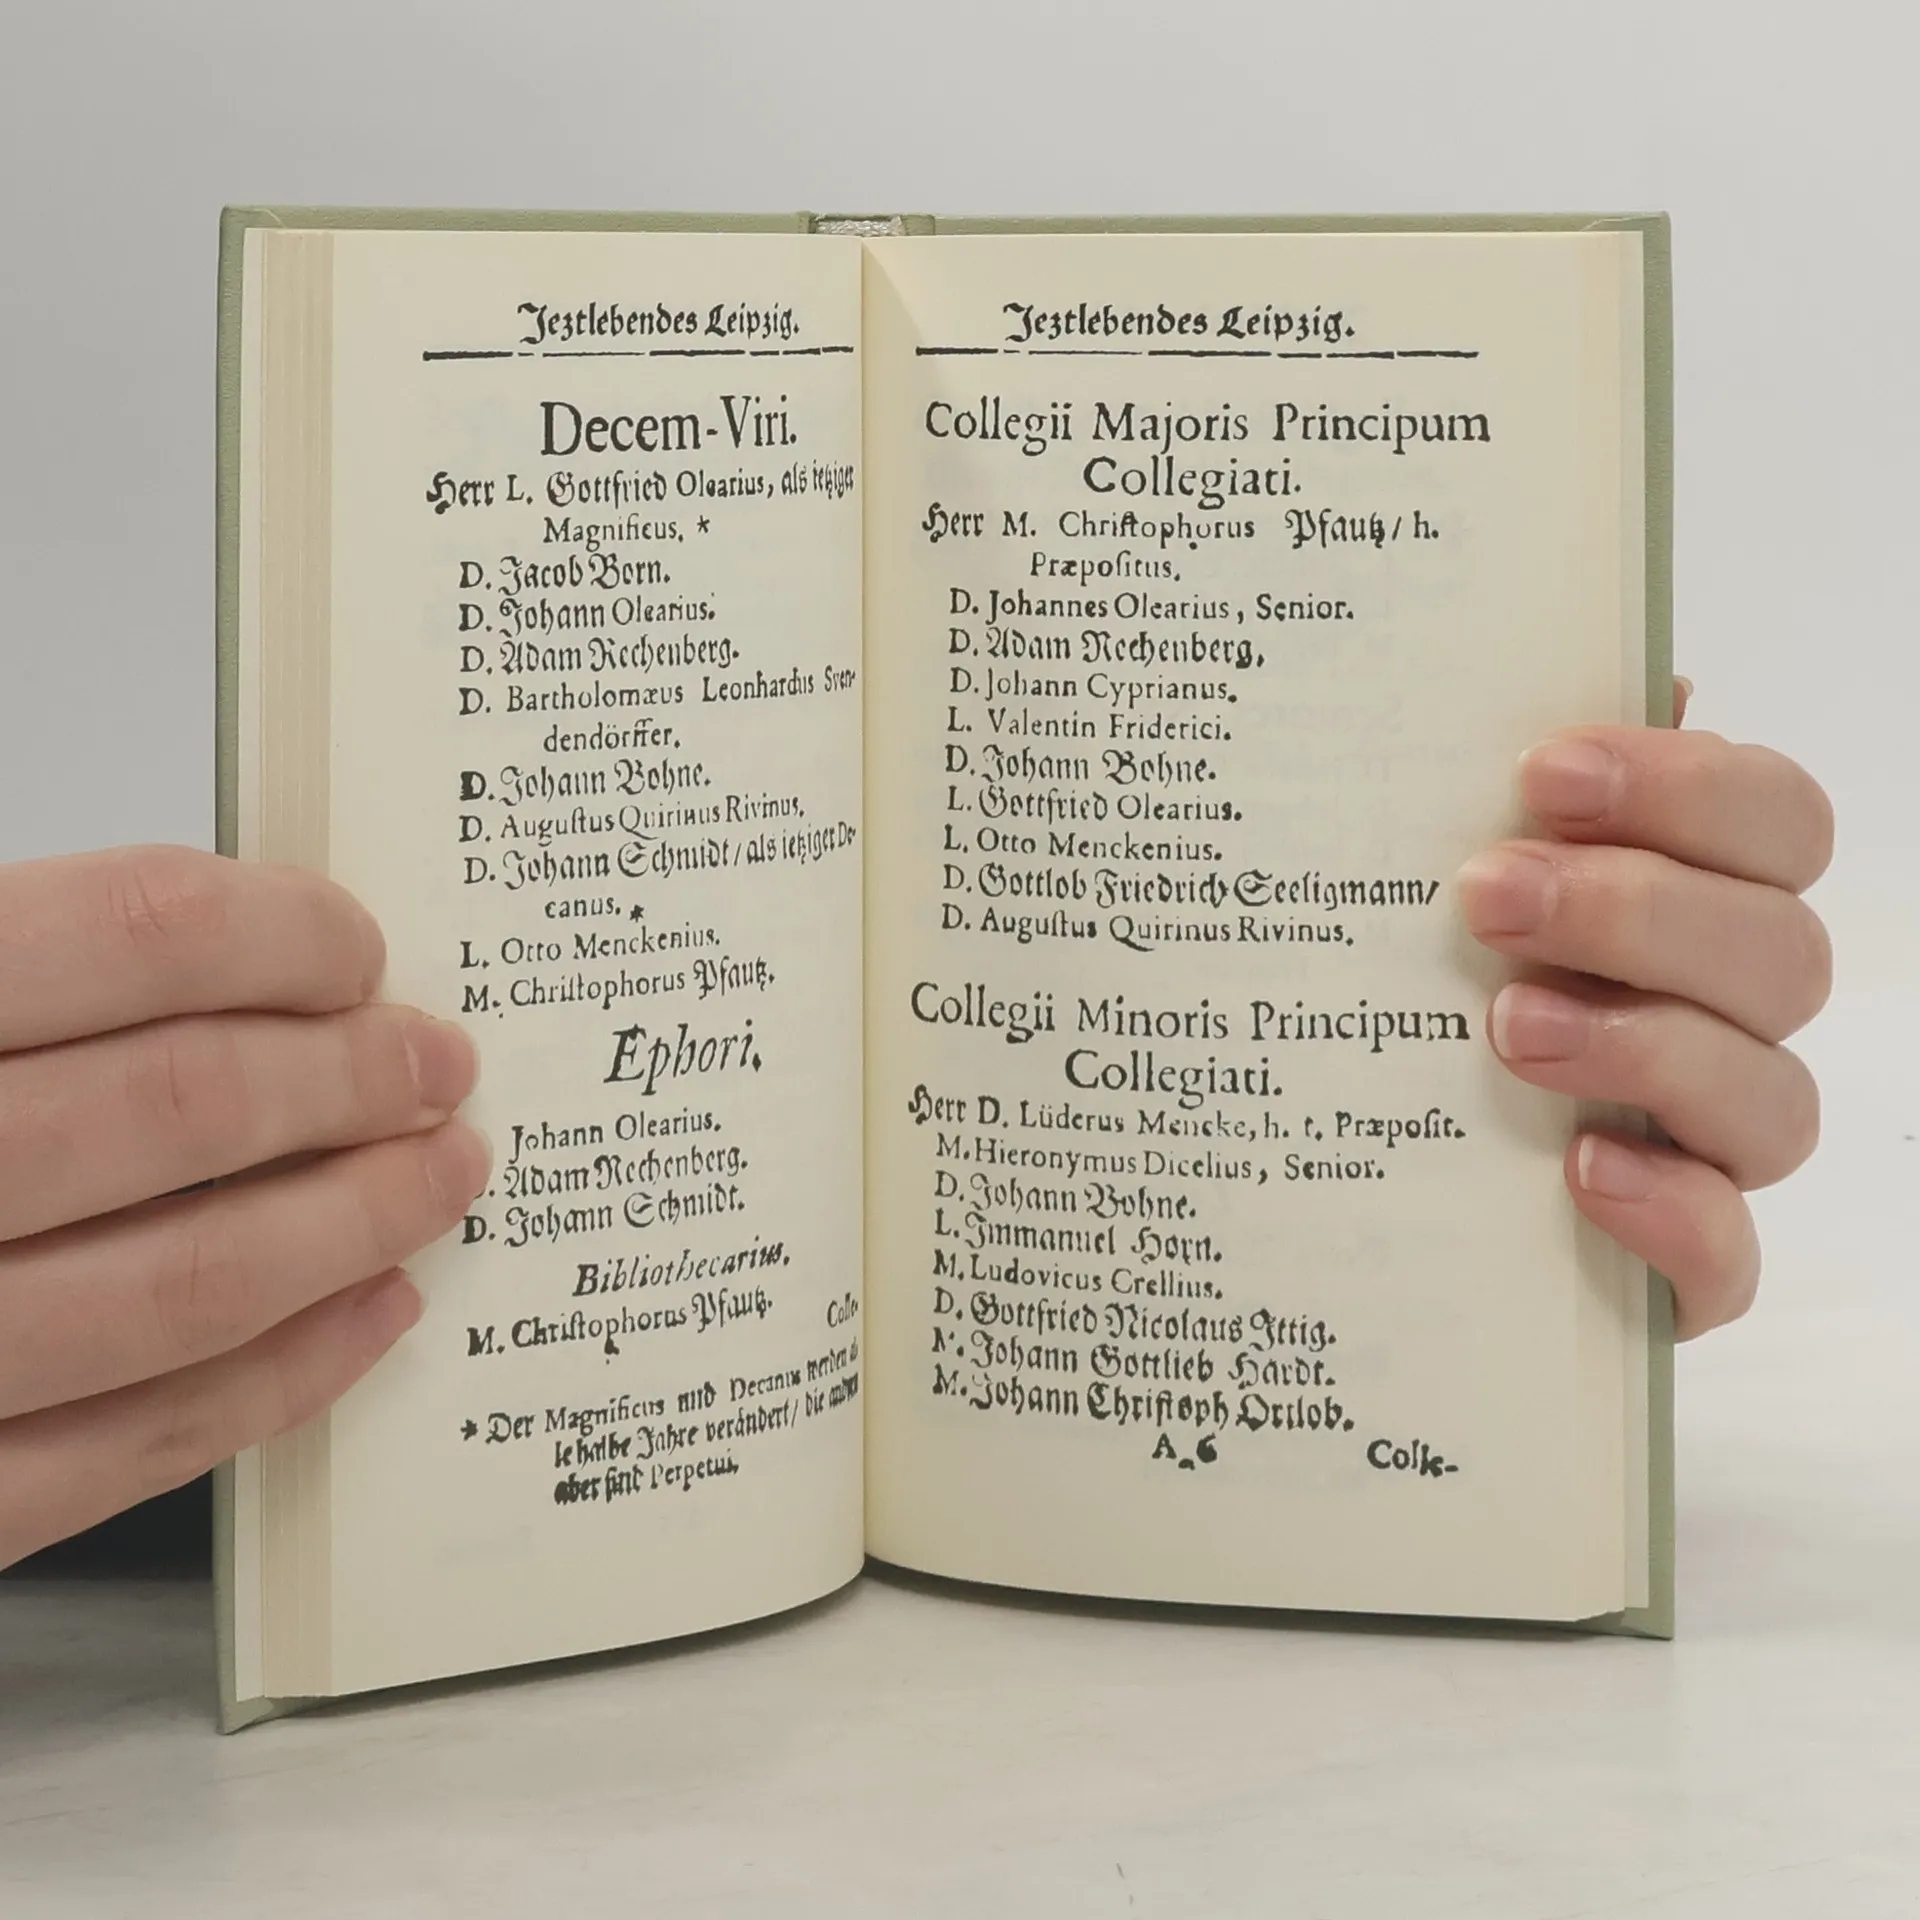 Jeztlebendes Leipzig.
Decem-Viri.
Herr L. Gottfried Olearius, als ietziger
Magnificus. *
D. Jacob Born.
D. Johann Olearius.
D. Adam Rechenberg.
D. Bartholomæus Leonhardus Sven-
dendörffer.
D. Johann Bohne.
D. Auguſtus Quirinus Rivinus.
D. Johann Schmidt / als ietziger De-
canus. *
L. Otto Menckenius.
M. Chriſtophorus Pfautz.
Ephori.
Johann Olearius.
D. Adam Rechenberg.
D. Johann Schmidt.
Bibliothecarius.
M. Chriſtophorus Pfautz.
Colle-
* Der Magnificus und Decanus werden
halbe Jahre verändert / die andern
aber sind Perpetui.
Jeztlebendes Leipzig.
Collegii Majoris Principum
Collegiati.
Herr M. Chriſtophorus Pfautz / h.
Præpoſitus.
D. Johannes Olearius, Senior.
D. Adam Rechenberg,
D. Johann Cyprianus.
L. Valentin Friderici.
D. Johann Bohne.
L. Gottfried Olearius.
L. Otto Menckenius.
D. Gottlob Friedrich Seeligmann /
D. Auguſtus Quirinus Rivinus.
Collegii Minoris Principum
Collegiati.
Herr D. Lüderus Mencke, h. t. Præpoſit.
M. Hieronymus Dicelius, Senior.
D. Johann Bohne.
L. Immanuel Horn.
M. Ludovicus Crellius.
D. Gottfried Nicolaus Ittig.
M. Johann Gottlieb Hardt.
M. Johann Chriſtoph Ortlob.
A 6
Colle-